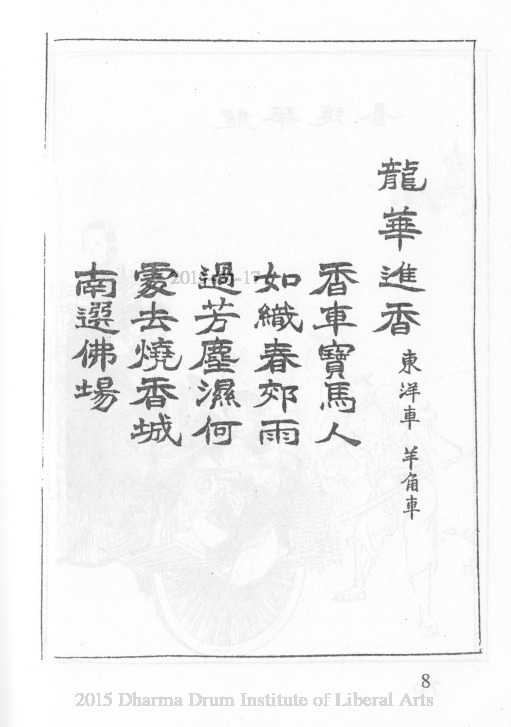 龍華進香 東洋車 羊角車
香車寶馬人
如織春郊雨
過芳塵濕何
處去燒香城
南選佛場
8
2015 Dharma Drum Institute of Liberal Arts